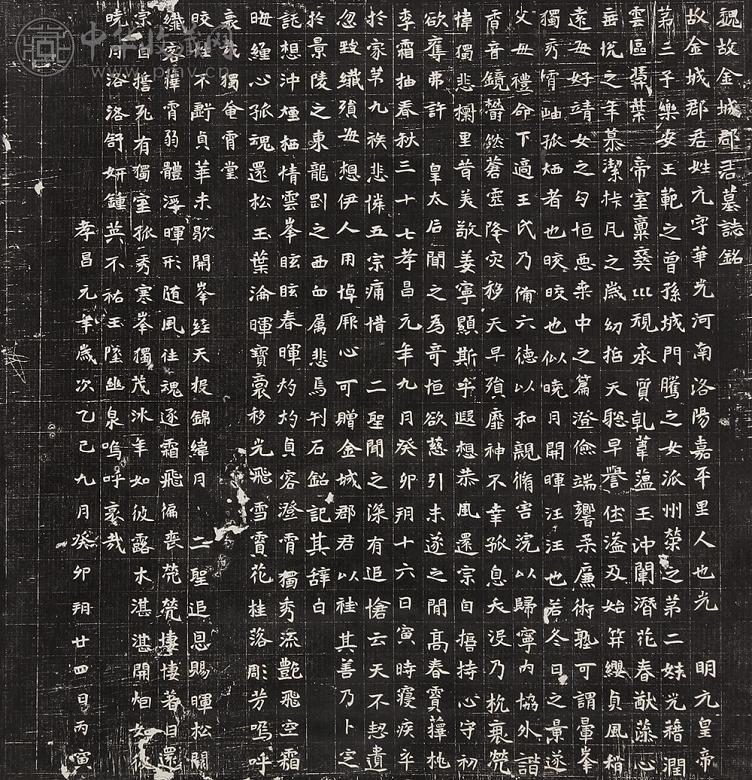 魏故金城郡君墓誌銘
故金城郡君姓元字華光河南洛陽嘉平里人也光 明元皇帝
第三子樂安王範之曾孫城門騰之女派州榮之第二妹光藉潤
雲區葉 帝室稟彝川視承質乾華蘊王沖闈潛花春猷藻心
垂悅之年慕潔瓜之歲幼指天聡早譽仕溢及始笄纓貞風楷
遠每好靖女之句恒惡桑中之篇澄儉端嚮柔廉術熟可謂暈峯
獨秀霄岫孤炳者也皎皎也似曉月開暉汪汪也若冬日之景遂
父母禮命下適王氏乃備六德以和親脩害浣以歸寧內協外諧
香音鏡欝然蒼靈降灾移天早殞靡神不幸孤息夭沒乃抗哀煢
惟獨悲櫚里昔美敬姜寧顯斯乎遐想恭風還宗自誓持心守初
欲奪弗許 皇太后聞之為奇恒欲慈引未遂之間高春賓蘀桃
李霜抽春秋三十七孝昌元年九月癸卯朔十六日寅時寢疾卒
於家第九族悲悼五宗痛惜 二聖聞之深有追愴云天不慭遺
忽致殲殞每想伊人用悼厥心可贈金城郡君以旌其善乃卜定
於景陵之東龍之西血属悲焉刊石銘記其辭曰
託想沖煙栖情雲峯眩眩春暉灼灼貞容澄霄獨秀流艷飛空霜
晦纏心孤魂還松玉葉淪暉寶移光飛雪霄花桂落彫芳嗚呼
哀哉獨奄霄堂
皎性不斷貞華未歇開峯經天振錦緯月 二聖追恩賜暉松闕
纖容擗霄弱體浮暉形随風往魂逐霜飛偏喪煢煢悽悽若日還
宗自誓死有獨室孤秀寒峯獨茂冰年如彼露木湛湛開烟如彼
曉月洛洛舒妍鍾其不祐玉墜幽泉嗚呼哀哉
孝昌元年歲次乙巳九月癸卯朔廿四日丙寅
中华收藏网